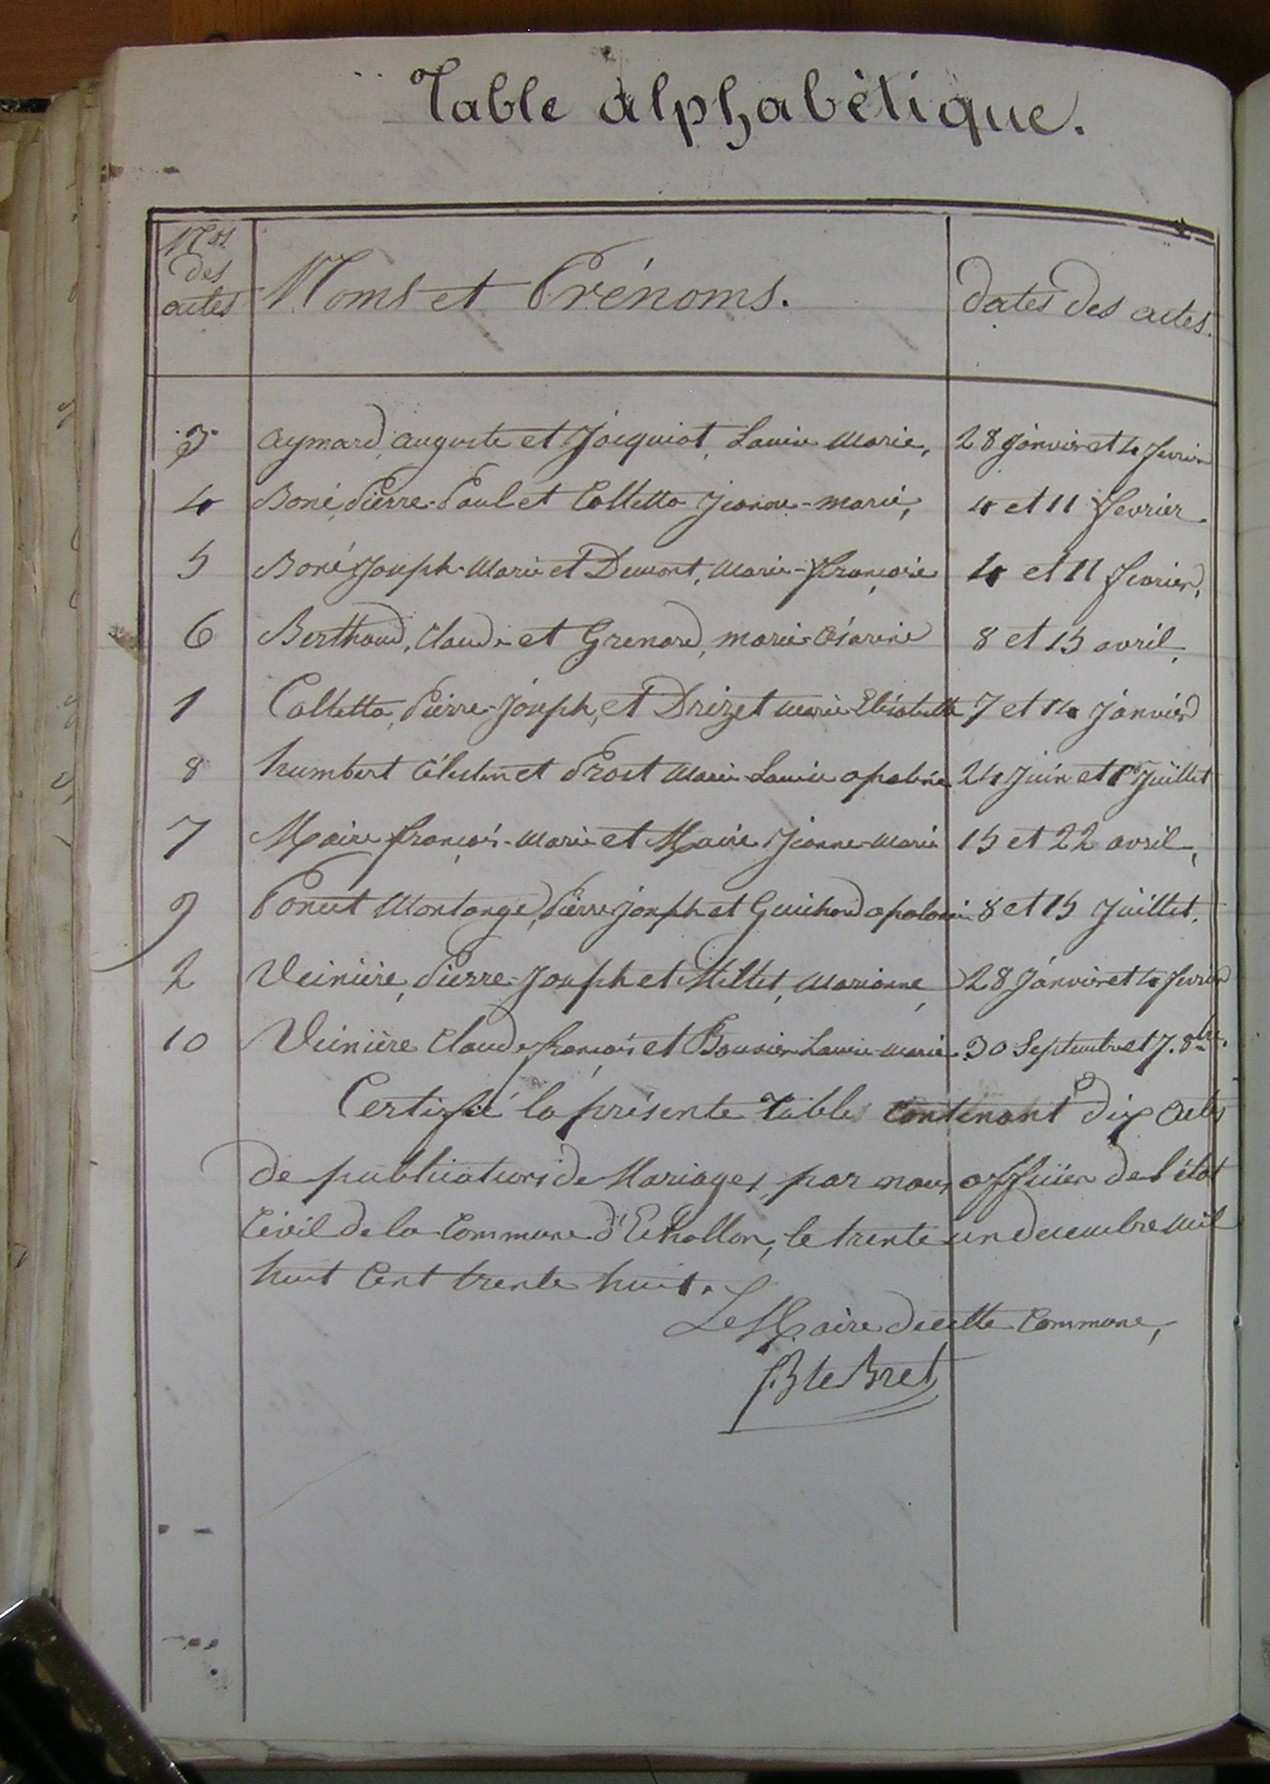 Table alphabétique.
Nos des actes Noms et Prénoms. dates des actes.
3 Aymard, auguste et Jacquiot, Louise Marie, 28 janvier et 4 fevrier
4 Boné, Pierre-Paul et Colletta Jeanne-marie, 4 et 11 fevrier.
5 Boné Joseph-Marie et Dumont, Marie-françoise 4 et 11 fevrier,
6 Berthoud, Claude et Grenard, marie-Césarine 8 et 15 avril,
1 Colletta, Pierre-Joseph, et Drizet marie-Elisabeth 7 et 14 Janvier
8 humbert Célestin et Prost Marie-Louise apolonie 24 Juin et 1er Juillet
7 Maire françois-Marie et Maire Jeanne-Marie 15 et 22 avril,
9 Poncet Montange, Pierre joseph et Guichard apolonie 8 et 15 Juillet.
2 Veinière, Pierre-Joseph et Millet, Marianne, 28 Janvier et 4 fevrier
10 Veinière Claude françois et Bouvier Louise marie 30 Septembre et 7. 8bre.
Certifié la présente Table contenant dix actes
de publications de Mariages, par nous officier de l'état
Civil de la Commune d'Echallon, le trente un decembre mil
huit Cent trente huit.
Le Maire de cette Commune,
Bte Bret